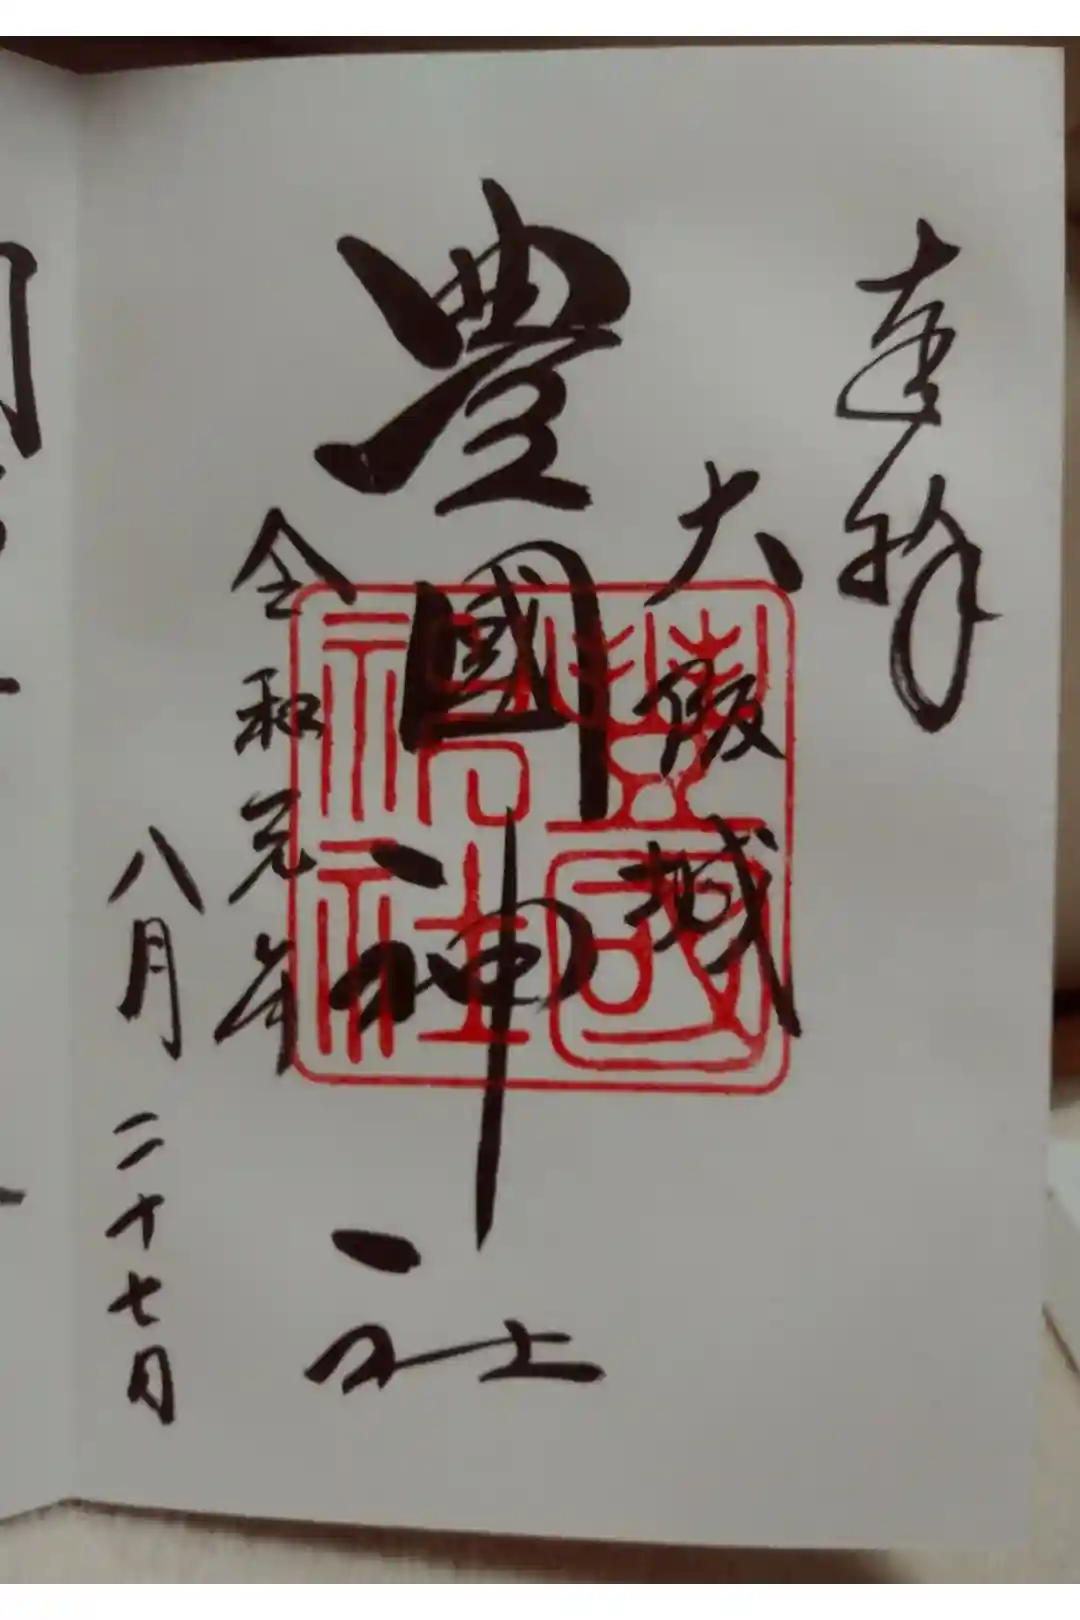 奉拝
大阪城
豊國神社
豐國神社
令和元年
八月二十七日